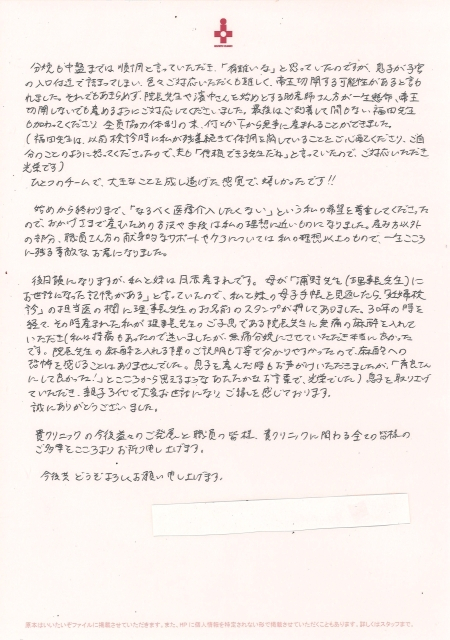 分娩も中盤までは順調と言っていただき、「有難いな」と思っていたのですが、息子が子宮
の入口付近で詰まってしまい、色々ご対応いただくも難しく、帝王切開する可能性があると言わ
れました。それでもあきらめず、院長先生や濱やさんを始めとする助産師さん方が一生懸命、帝王
切開しないでも産めるようにご対応してくださいました。最後はご到着して間もない福田先生
も加わってくださり、全員協力体制の末、何とか下から息子に産まれることができました。
(福田先生は、以前検診時に私が残業続きで体調を崩していることをご心配くださり、ご自
分のことのように怒ってくださったので、夫も「信頼できる先生だね」と言っていたので、ご対応いただき
光栄です)
ひとつのチームで、大きなことを成し遂げた感覚で、嬉しかったです!!
始めから終わりまで、「なるべく医療介入したくない」という私の希望を尊重してくださった
ので、おかげさまで産むための方法や手段は私の理想に近いものになりました。産み方以外
の部分、職員さん方の献身的なサポートやケアについては私の理想以上のもので、一生こころ
に残る素敵なお産になりました。
後日談になりますが、私と妹は日赤産まれです。母が「浦野先生(理事長先生)に
お世話になった記憶がある」と言っていたので、私と妹の母子手帳を見返したら、「妊婦検
診」の担当医の欄に理事長先生のお名前のスタンプが押してありました。30年の時を
経て、その時産まれた私が理事長先生のご子息である院長先生に無痛の麻酔を入れて
いただき(私は持病もあったので迷いましたが、無痛分娩にさせていただき本当に良かった
です。院長先生の麻酔を入れる手順のご説明も丁寧で分かりやすかったので、麻酔への
恐怖を感じることはありませんでした。息子を産んだ時もお声がけいただきましたが、「
にして良かった!」とこころから思えるようなあたたかなお言葉で、光栄でした)息子を取り上げ
ていただき、親子3代で大変お世話になり、ご縁を感じております。
誠にありがとうございました。
貴クリニックの今後益々のご発展と職員の皆様、貴クリニックに関わる全ての皆様の
ご多幸をこころよりお祈り申し上げます。
今後共どうぞよろしくお願い申し上げます。
原本はいいたいぞファイルに掲載させていただきます。また、HPに個人情報を特定されない形で掲載させていただくこともあります。詳しくはスタッフまで。